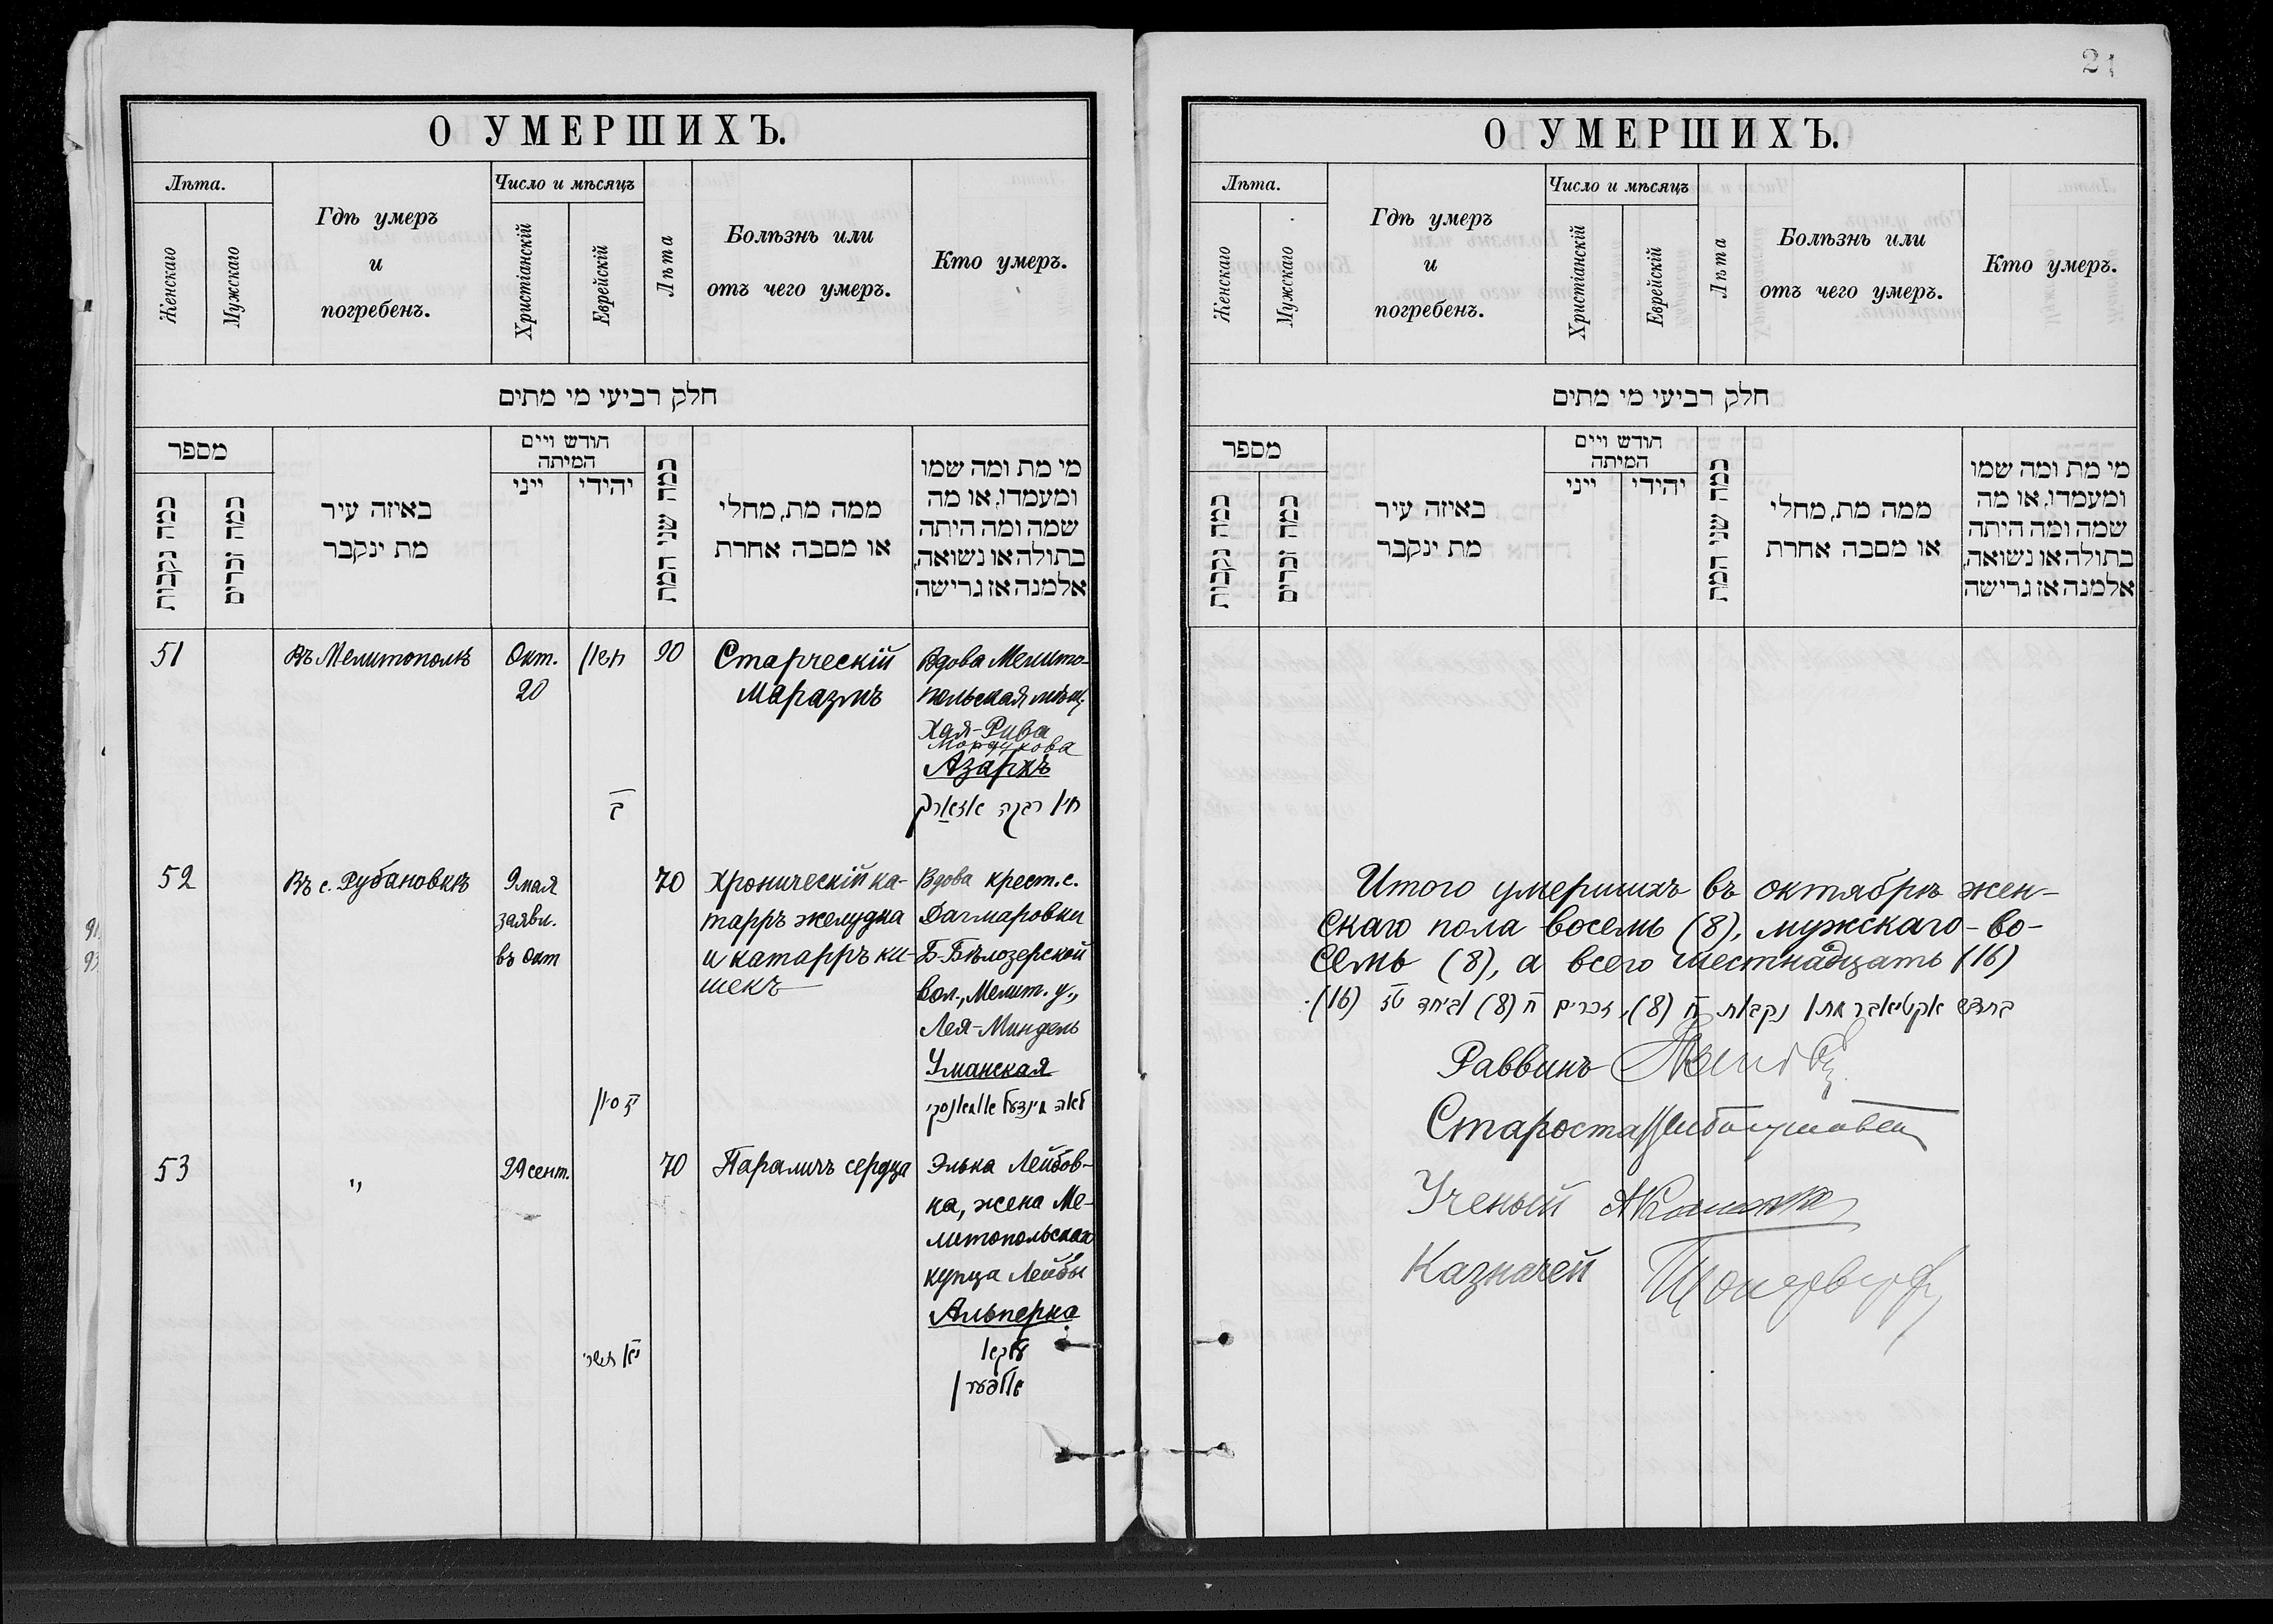 О УМЕРШИХЪ.
Лѣта.
Женскаго
Мужскаго
Гдѣ умеръ
и
погребенъ.
Число и мѣсяцъ
Христіанскій
Еврейскій
Лѣта
Болѣзнь или
отъ чего умеръ.
Кто умеръ.
חלק רביעי מי מתים
מספר
כמה נקבות
כמה זכרים
באיזה עיר
מת ינקבר
חודש ויים
המיתה
ייני
יהודי
כמה שני המת
ממה מת, מחלי
או מסבה אחרת
מי מת ומה שמו
ומעמדו, או מה
שמה ומה היתה
בתולה או נשואה,
אלמנה אז גרישה
51
Въ Мелитополѣ
Окт.
20
חשון
כ
90
Старческій
маразмъ
Вдова Мелито-
польская мѣщ.
Хая-Рива
Мордукова
Азархъ
חיה רבקה אזארך
52
Въ с. Рубановкѣ
9 мая
заявл.
въ Окт
סיון
70
Хроническій ка-
тарръ желудка
и катарръ ки-
шекъ
Вдова крест. с.
Дагмаровки
Б-Бѣлозерской
вол., Мелит. у.,
Лея-Миндель
Уманская
לאה מינדעל אומאנסקי
53
"
29 сент.
יא תשרי
70
Параличъ сердца
Элька Лейбов-
на, жена Ме-
литопольскаго
купца Лейбы
Альперна
עלקא
אלפערן
21
О УМЕРШИХЪ.
Лѣта.
Женскаго
Мужскаго
Гдѣ умеръ
и
погребенъ.
Число и мѣсяцъ
Христіанскій
Еврейскій
Лѣта
Болѣзнь или
отъ чего умеръ.
Кто умеръ.
חלק רביעי מי מתים
מספר
כמה נקבות
כמה זכרים
באיזה עיר
מת ינקבר
חודש ויים
המיתה
ייני
יהודי
כמה שני המת
ממה מת, מחלי
או מסבה אחרת
מי מת ומה שמו
ומעמדו, או מה
שמה ומה היתה
בתולה או נשואה,
אלמנה אז גרישה
Итого умершихъ въ октябрѣ жен-
скаго пола восемь (8), мужскаго - во-
семь (8), а всего шестнадцать (16)
בחדש אקטיאבר מתו נקבות ח (8), זכרים ח (8) וביחד טז (16)
Раввинъ
Староста
Ученый
Казначей